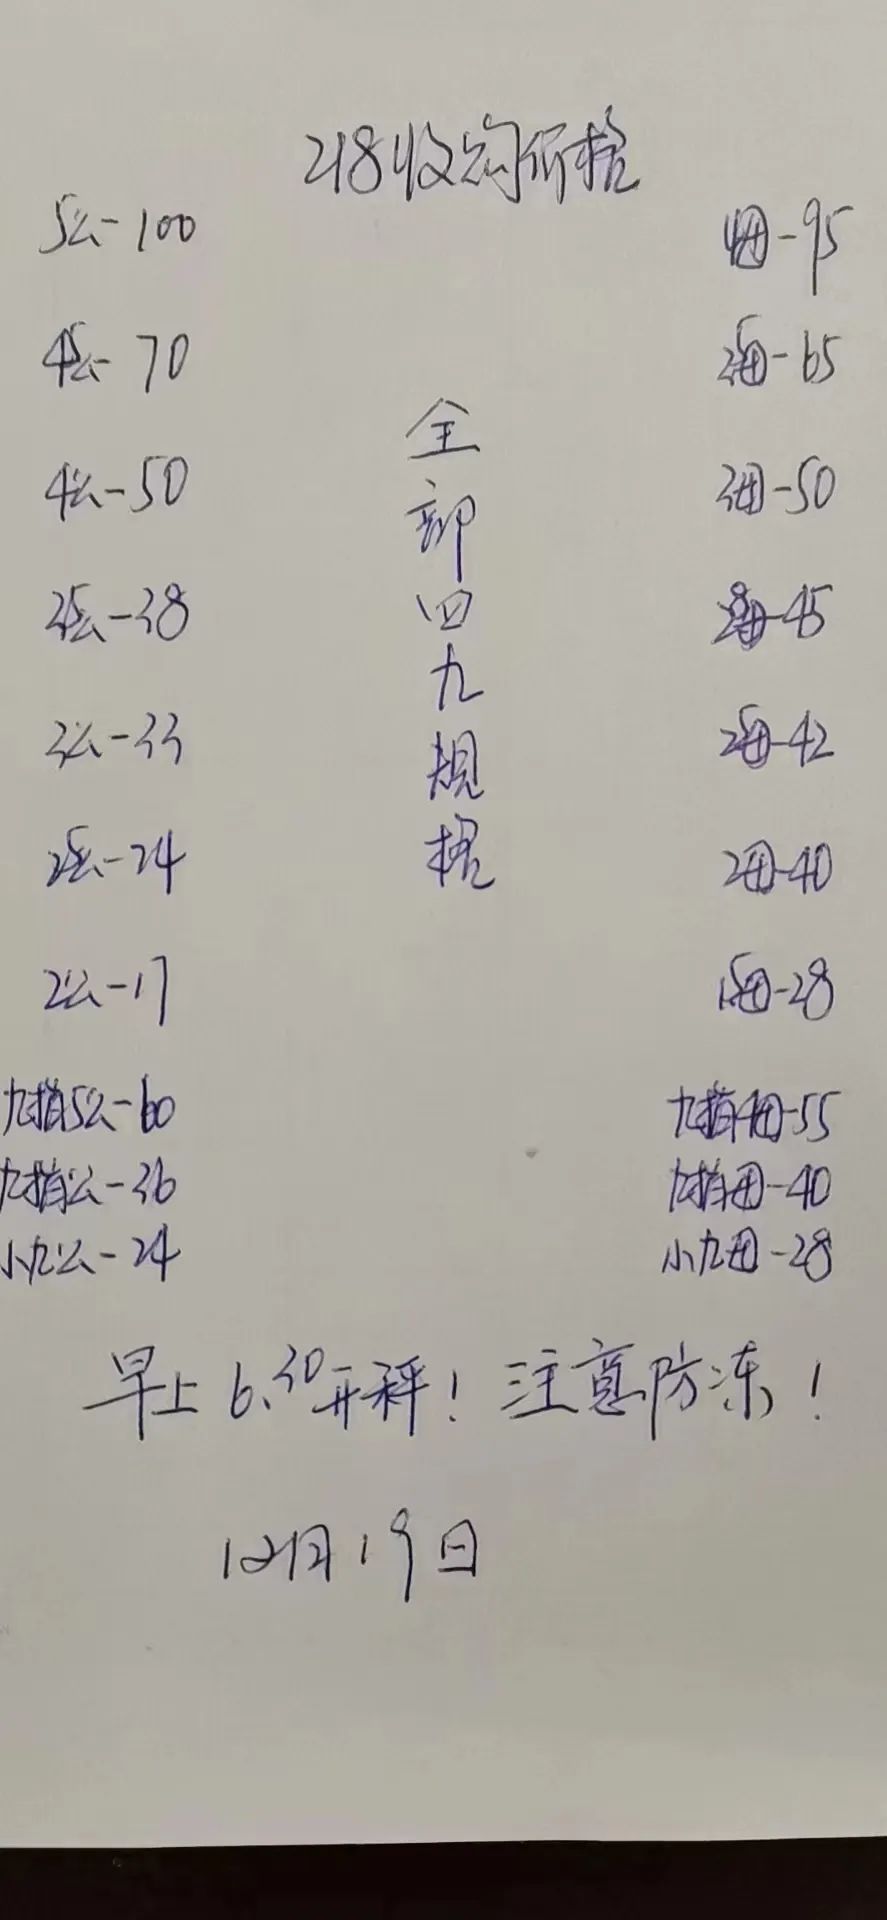 218收购价格
5公-100 4母-95
45公-70 35母-65
4公-50 3母-50
35公-38 28母-45
3公-33 25母-42
25公-24 2母-40
2公-17 15母-28
全部四九规格
九指5公-60 九指4母-55
九指公-36 九指母-40
小九公-24 小九母-28
早上6.30开秤！注意防冻！
12月19日